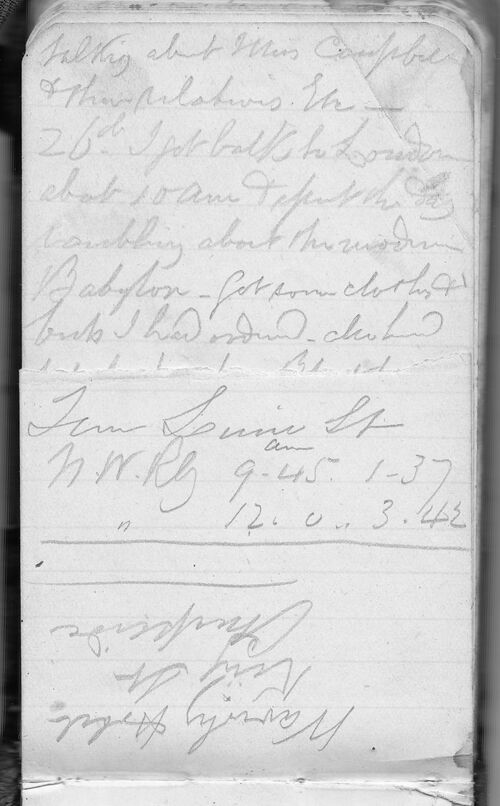 talking about Miss Campbell
& their relations. Etc —
26th I got back to London
about 10 am & spent the day
rambling about the modern
Babylon – got some clothes &
I had ordered –
St
N. W. Rly 9-45 am 1-37
" 12. 0 .. 3. 42
Cheapside
King St
Hotel